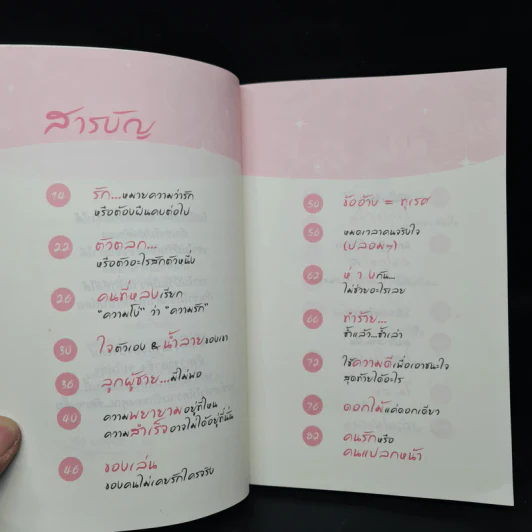 สารบัญ
14 รัก...หมายความว่ารัก
หรือต้องฝืนคบต่อไป
22 ตัวตลก...
หรือตัวอะไรสักตัวหนึ่ง
26 คนที่หลงเรียก
"ความโง่" ว่า "ความรัก"
30 ใจตัวเอง & น้ำลายของเขา
36 ลูกผู้ชาย...มีไม่พอ
40 ความพยายามอยู่ที่ไหน
ความสำเร็จอาจไม่ได้อยู่ที่นั่น
46 ของเล่น
ของคนไม่เคยรักใครจริง
50 ข้ออ้าง = ทุเรศ
56 หมดเวลาคนจริงใจ
(ปลอมๆ)
62 ห่างกัน...
ไม่ช่วยอะไรเลย
66 ทำร้าย...
ซ้ำแล้ว...ซ้ำเล่า
72 ใช้ความดีเพื่อเอาชนะใจ
สุดท้ายได้อะไร
76 ดอกไม้แค่ดอกเดียว
82 คนรักหรือ
คนแปลกหน้า